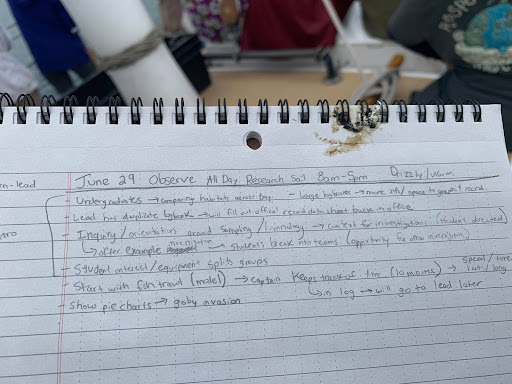 June 29 Observe All Day Research Sail 8am-5pm Drizzly/Warm
n-lead
- Undergraduates → comparing habitats across bay - Large logbooks → more info/space to graph + record
- Lead has duplicate logbook → will fill out official record data sheet back in office
tro
- Inquiry/orientation around sampling/limnology → context for investigations (student directed)
↳ after example investigation → students break into teams (opportunity for other investigations)
- Student interest/equipment splits groups
- Start with fish trawl (model) → captain keeps track of time (10 minutes) → speed/time lat/long
↳ in log → will go to lead later
- Show pie charts → goby invasion